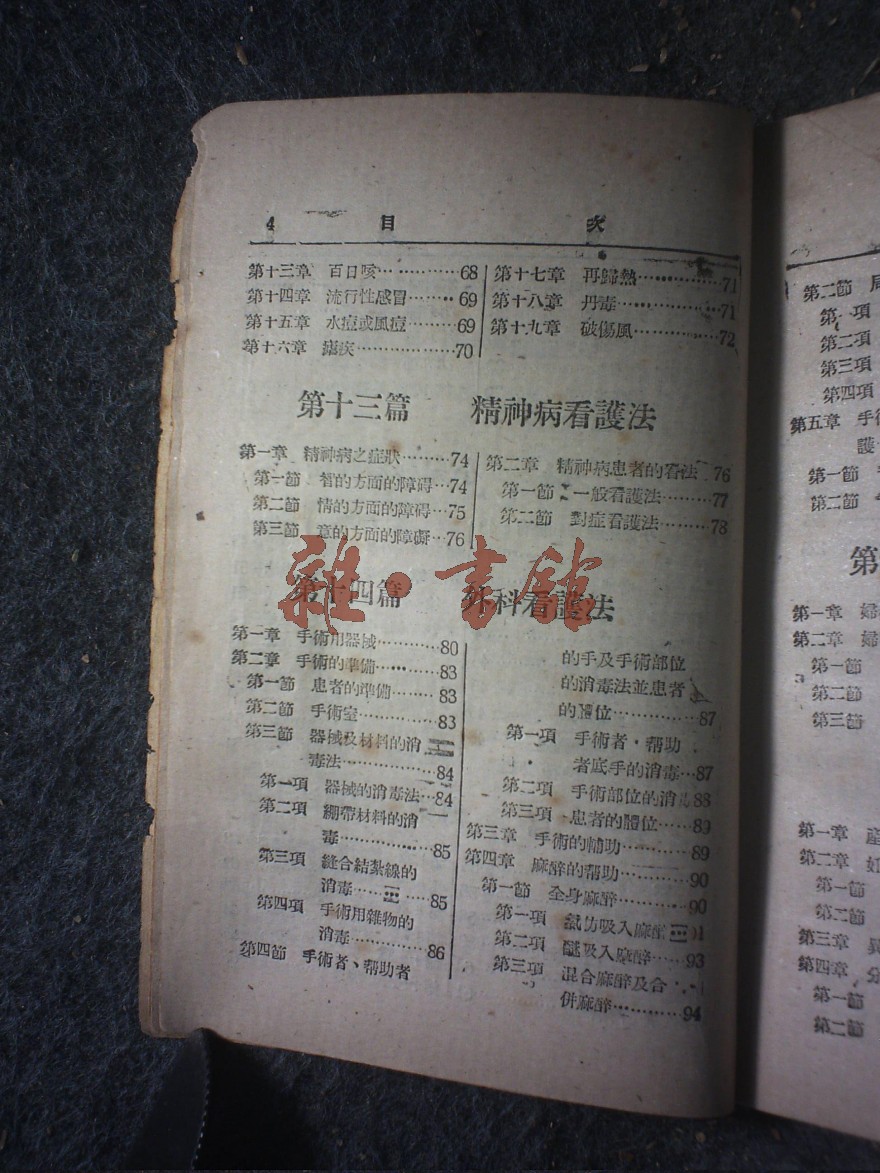 4 目 次
第十三章 百日咳…………68
第十四章 流行性感冒………69
第十五章 水痘或風痘………69
第十六章 瘧疾………………70
第十七章 再歸熱……………71
第十八章 丹毒………………71
第十九章 破傷風……………72
第十三篇 精神病看護法
第一章 精神病之症狀………74
第一節 智的方面的障碍…74
第二節 情的方面的障碍…75
第三節 意的方面的障礙…76
第二章 精神病患者的看法 76
第一節 一般看護法………77
第二節 對症看護法………78
第十四篇 外科看護法
第一章 手術用器械…………80
第二章 手術的準備…………83
第一節 患者的準備………83
第二節 手術室……………83
第三節 器械及材料的消
毒法………………84
第一項 器械的消毒法…84
第二項 綳帶材料的消
毒…………………85
第三項 縫合結紮線的
消毒………………85
第四項 手術用雜物的
消毒………………86
第四節 手術者、幇助者
的手及手術部位
的消毒法並患者
的體位……………87
第一項 手術者・幇助
者底手的消毒…87
第二項 手術部位的消 88
第三項 患者的體位……89
第三章 手術的輔助…………89
第四章 麻醉的幇助…………90
第一節 全身麻醉…………90
第一項 吸入麻醉 91
第二項 醚吸入麻醉……93
第三項 混合麻醉及合
併麻醉……………94
雜·書館
第二節
第一項
第二項
第三項
第四項
第五章 手術
護
第一節
第二節
第
第一章 婦
第二章 婦
第一節
第二節
第三節
第一章 產
第二章 妊
第一節
第二節
第三章 異
第四章 分
第一節
第二節